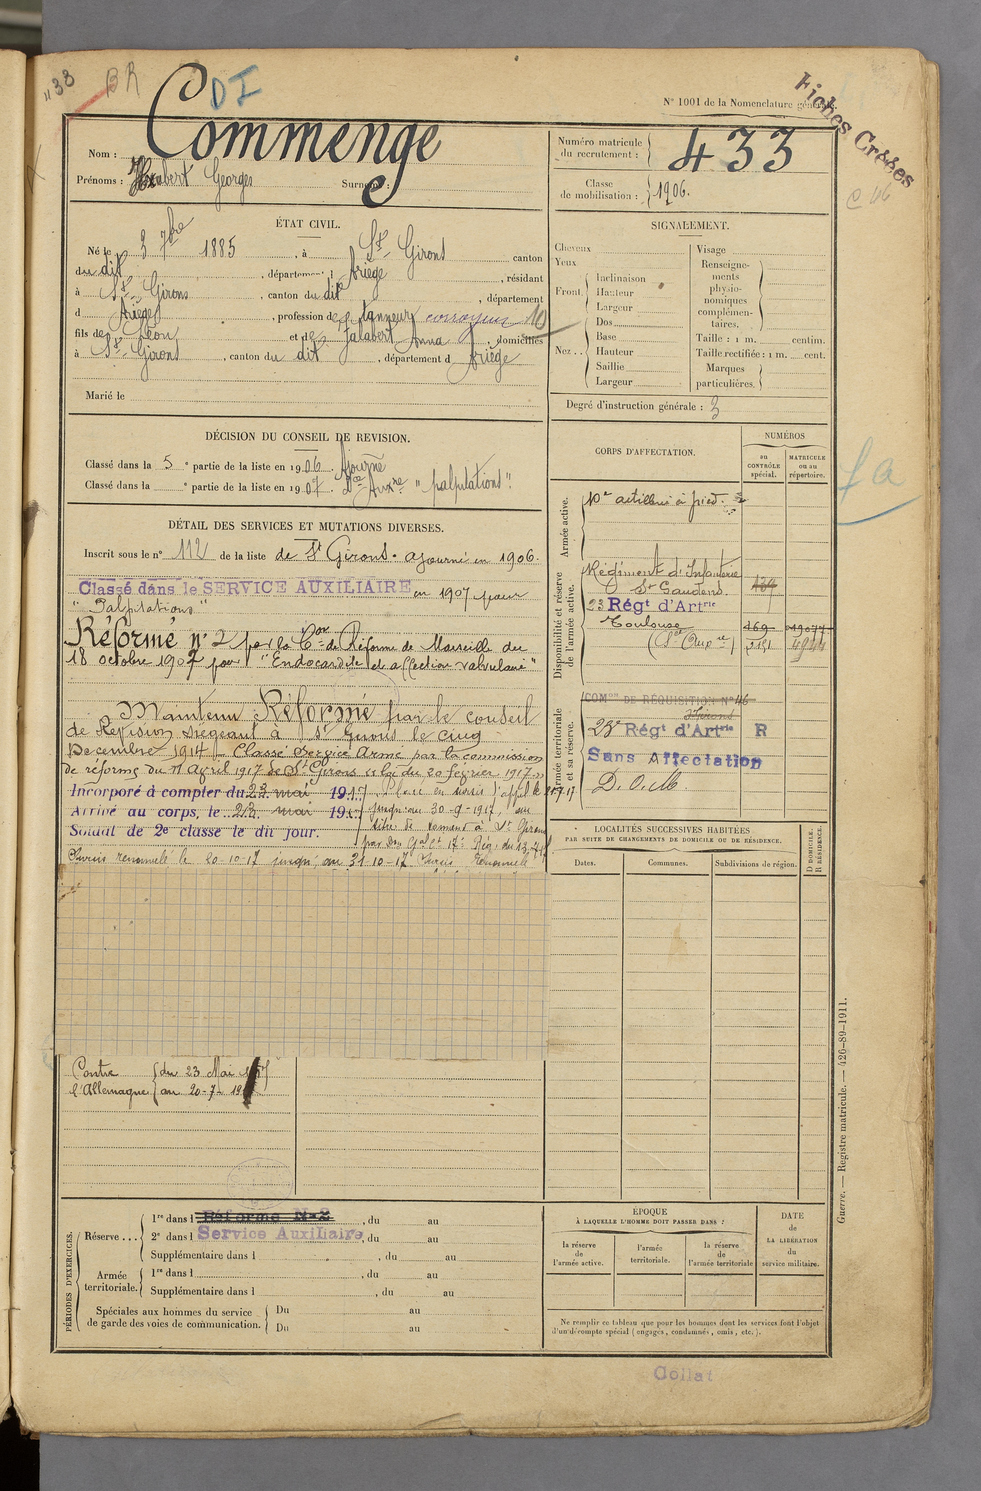 "33 BR DI
N° 1001 de la Nomenclature générale.
Fiches Créées
Nom : Commenge
Prénoms : Hubert Georges Surnom :
Numéro matricule du recrutement : 433
Classe de mobilisation : 1906.
ÉTAT CIVIL.
Né le 3 7bre 1885, à St Girons canton
du dit, département d Ariège, résidant
à St Girons, canton du dit, département
d Ariège, profession de tanneur corroyeur
fils de Léon et de Jalabert Anna, domiciliés
à St Girons, canton du dit, département d Ariège
Marié le
SIGNALEMENT.
Cheveux
Yeux
Front. Inclinaison
Hauteur
Largeur
Nez.. Dos
Base
Hauteur
Saillie
Largeur
Visage
Renseignements physionomiques complémentaires.
Taille : 1 m. centim.
Taille rectifiée : 1 m. cent.
Marques particulières.
Degré d'instruction générale : 3
DÉCISION DU CONSEIL DE REVISION.
Classé dans la 5e partie de la liste en 1906. Ajourné
Classé dans la e partie de la liste en 1907. Sce Auxre "palpitations".
DÉTAIL DES SERVICES ET MUTATIONS DIVERSES.
Inscrit sous le n° 112 de la liste de St Girons. Ajourné en 1906.
Classé dans le SERVICE AUXILIAIRE en 1907 pour
"Palpitations"
Réformé n° 2 par la Con de Réforme de Marseille du
18 octobre 1907 pour "Endocardite et affection valvulaire"
Maintenu Réformé par le conseil
de Révision siégeant à St Girons le cinq
Décembre 1914. Classé Service Armé par la commission
de réforme du 11 Avril 1917 de St Girons du 20 février 1917
Incorporé à compter du 23 mai 1917
Arrivé au corps, le 23 mai 1917
Soldat de 2e classe le dit jour.
Placé en sursis d'appel le
jusqu'au 30-9-1917, au
titre de à St Girons
Sursis renouvelé le 20-10-17 jusqu'au 31-10-17 Sursis renouvelé
Contre l'Allemagne du 23 Mai
au 20-7-19
CORPS D'AFFECTATION.
NUMÉROS
au CONTRÔLE spécial.
MATRICULE ou au répertoire.
Armée active.
artillerie à pied.
Disponibilité et réserve de l'armée active.
Régiment d'Infanterie
St Gaudens.
23 Régt d'Artie
Toulouse 169
Armée territoriale et sa réserve.
COMon DE RÉQUISITION N° 46
St Girons
23e Régt d'Artie R
Sans Affectation
D.O.M
fa
LOCALITÉS SUCCESSIVES HABITÉES
PAR SUITE DE CHANGEMENTS DE DOMICILE OU DE RÉSIDENCE.
Dates. Communes. Subdivisions de région. D DOMICILE. R RÉSIDENCE.
Guerre. — Registre matricule. — 426-89-1911.
PÉRIODES D'EXERCICES.
Réserve ... 1re dans l Réformé N° 2, du au
2e dans l Service Auxiliaire, du au
Supplémentaire dans l , du au
Armée territoriale. 1re dans l , du au
Supplémentaire dans l , du au
Spéciales aux hommes du service de garde des voies de communication. Du au
Du au
ÉPOQUE
À LAQUELLE L'HOMME DOIT PASSER DANS :
la réserve de l'armée active.
l'armée territoriale.
la réserve de l'armée territoriale
DATE de LA LIBÉRATION du service militaire.
Ne remplir ce tableau que pour les hommes dont les services font l'objet
d'un décompte spécial (engagés, condamnés, omis, etc.).
Collat